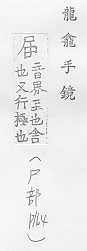 龍龕手鏡
届音界至也舍
也又行極也
(尸部
P164)